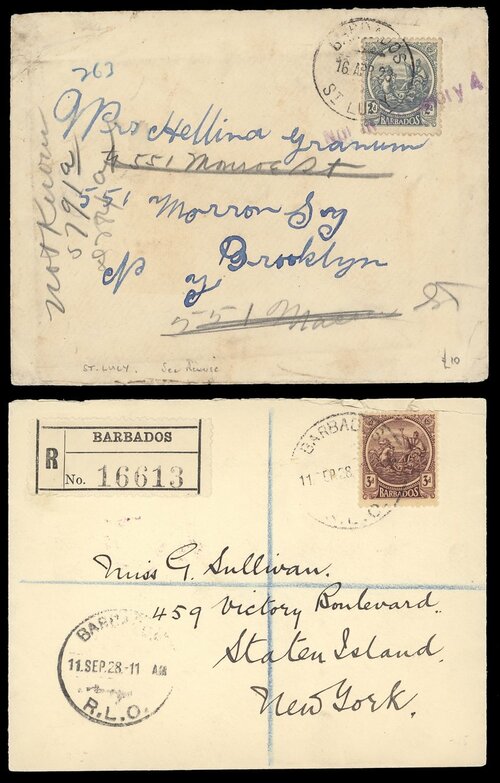 263
BARBADOS
16 APR 28
ST LUCY
2d 2d
BARBADOS
Mrs Hellina Granum
551 Monroe St
551 Morron Soy
Brooklyn
N Y
551
St
Not Known
5791a
ST. LUCY. See Reverse
£10
BARBADOS
R No. 16613
BARBADOS
11 SEP 28
R.L.O.
3d 3d
BARBADOS
Miss G. Sullivan.
459 Victory Boulevard.
Staten Island.
New York.
BARBADOS
11.SEP.28.-11 AM
R.L.O.